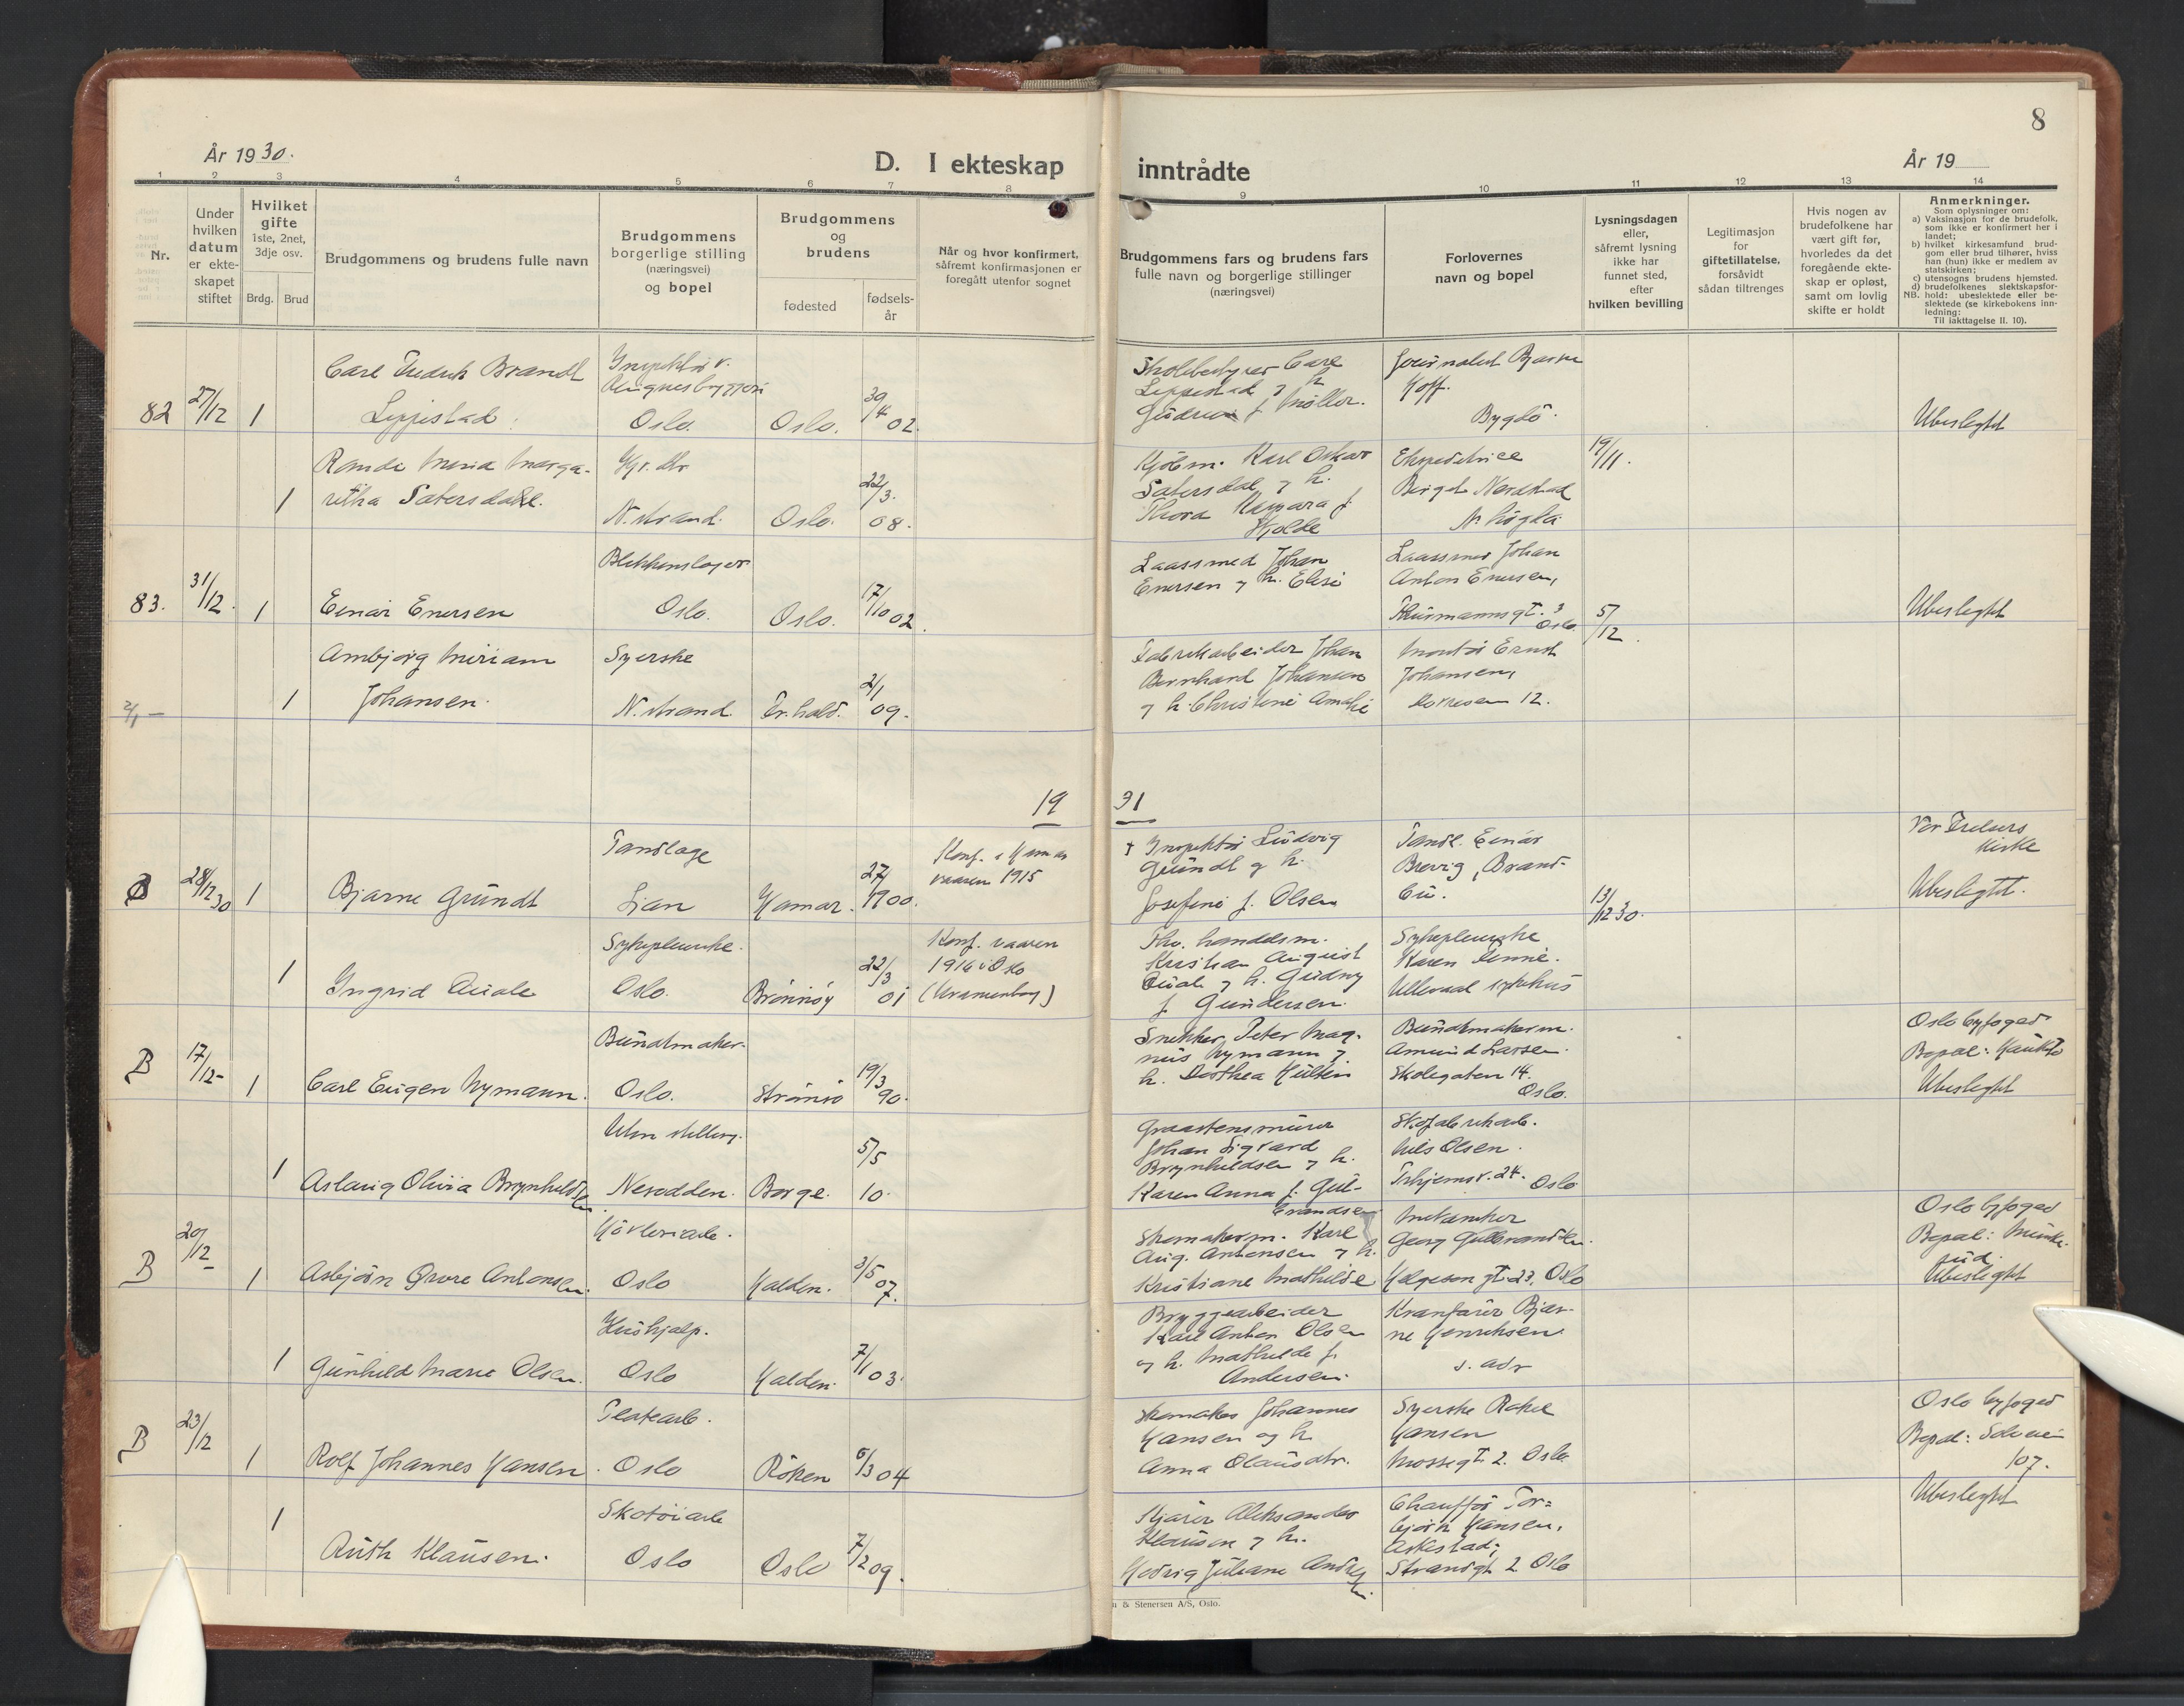 8
År 1930.
D. I ekteskap
inntrådte
År 19
1 2 3 4 5 6 7 8 9 10 11 12 13 14
Nr.
Under hvilken datum er ekte-skapet stiftet
Hvilket gifte 1ste, 2net, 3dje osv.
Brdg. Brud
Brudgommens og brudens fulle navn
Brudgommens borgerlige stilling (næringsvei) og bopel
Brudgommens og brudens
fødested
fødsels-år
Når og hvor konfirmert, såfremt konfirmasjonen er foregått utenfor sognet
Brudgommens fars og brudens fars fulle navn og borgerlige stillinger (næringsvei)
Forlovernes navn og bopel
Lysningsdagen eller, såfremt lysning ikke har funnet sted, efter hvilken bevilling
Legitimasjon for giftetillatelse, forsåvidt sådan tiltrenges
Hvis nogen av brudefolkene har vært gift før, hvorledes da det foregående ekte-skap er opløst, samt om lovlig skifte er holdt
Anmerkninger.
Som oplysninger om:
a) Vaksinasjon for de brudefolk, som ikke er konfirmert her i landet;
b) hvilket kirkesamfund brud-gom eller brud tilhører, hviss han (hun) ikke er medlem av statskirken;
c) utensogns brudens hjemsted.
d) brudefolkenes slektskapsfor-
NB. hold: ubeslektede eller be-slektede (se kirkebokens inn-ledning:
Til iakttagelse II. 10).
82 27/12 1
Carl Fredrik Brandt
Leppestad
Oslo. Oslo. 30/4 02.
Skolebestyrer Carl
Leppestad og h.
Gudrun f. Møller.
Journalist Bjarne
Hoff.
Bygdö.
Ubeslegtet
1
Randi Maria Marga-
retha Satersdal.
N.strand. Oslo. 22/3. 08.
Kjöbm. Karl Oskar
Satersdal og h.
Thora Ragnara f.
Hjolde
Ekspeditrice
Birgit Nordstad
19/11.
83. 31/12. 1
Einar Enersen
Blikkenslager
Oslo. Oslo. 17/10 02.
Laassmed Johan
Enersen og h. Elise
Laassmed Johan
Anton Enersen,
Thurmannsgt. 3
Oslo.
5/12.
Ubeslegtet
2/1 — 1
Ambjørg Miriam
Johansen.
Syerske
N.strand. Fr.hald. 2/1 09.
Fabrikarbeider Johan
Bernhard Johansen
og h. Christine Amalie
Montør Ernst
Johansen,
12.
19
31
B 28/12 30 1
Bjarne Gründt
Tandlæge
Ljan Hamar. 27/ 1900.
Konf. i Hamar
vaaren 1915
† Inspektør Ludvig
Gründt og h.
Josefine f. Olsen
Tandl. Einar
Brevig, Brand-
bu.
13/12 30.
Vor Frelsers
kirke
Ubeslegtet.
1
Ingrid Quale
Sykepleierske.
Oslo. Brønnøy 22/3 01
Konf. vaaren
1916 i Oslo
(Uranienborg)
Fhv. handelsm.
Kristian August
Quale og h. Gudny
f. Gundersen.
Sykepleierske
Karen
Ullevaal sykehus
B 17/12- 1
Carl Eugen Nymann.
Buntmaker.
Oslo. Strömsö 19/3 90.
Snekker Peter Mag-
nus Nymann og
h. Dorthea Hulten
Buntmakerm.
Amund Larsen.
Skolegaten 14.
Oslo.
Oslo byfoged
Bopæl: Hauketo
Ubeslegtet
1
Aslaug Olivia Brynhildsen
Uten stilling.
Nesodden. Borge. 5/5 10.
Graastensmurer
Johan Sigvard
Brynhildsen og h.
Karen Anna f. Gul-
brandsen
Skofabrikarb.
Nils Olsen.
24. Oslo
B 20/12- 1
Asbjørn Grore Antonsen.
Høvleriarb.
Oslo Halden. 3/5 07.
Skomakerm. Karl
Aug. Antonsen og h.
Kristiane Mathilde
Mekaniker
Georg Gulbrandsen.
Helgesens gt. 23. Oslo
Oslo byfoged
Bopæl: Munke-
rud.
Ubeslegtet
1
Gunhild Marie Olsen.
Hushjælp.
Oslo Halden. 7/1 03.
Bryggearbeider
Karl Anton Olsen
og h. Mathilde f.
Andersen.
Kranfører Bjar-
ne Henriksen.
s. adr
B 23/12 1
Rolf Johannes Hansen.
Platearb.
Oslo Röken 6/3 04
Skomaker Johannes
Hansen og h.
Anna Olausdtr.
Syerske Rakel
Hansen
Mossegt. 2. Oslo
Oslo byfoged
Bopæl:
107.
Ubeslegtet
1
Ruth Klausen.
Skotöiarb
Oslo Oslo 7/2 09.
Kjører Aleksander
Klausen og h.
Hedvig Juliane Andresen
Chauffør Tor-
bjørn Hansen,
Askestad;
Strandgt 2 Oslo
& Stenersen A/S, Oslo.